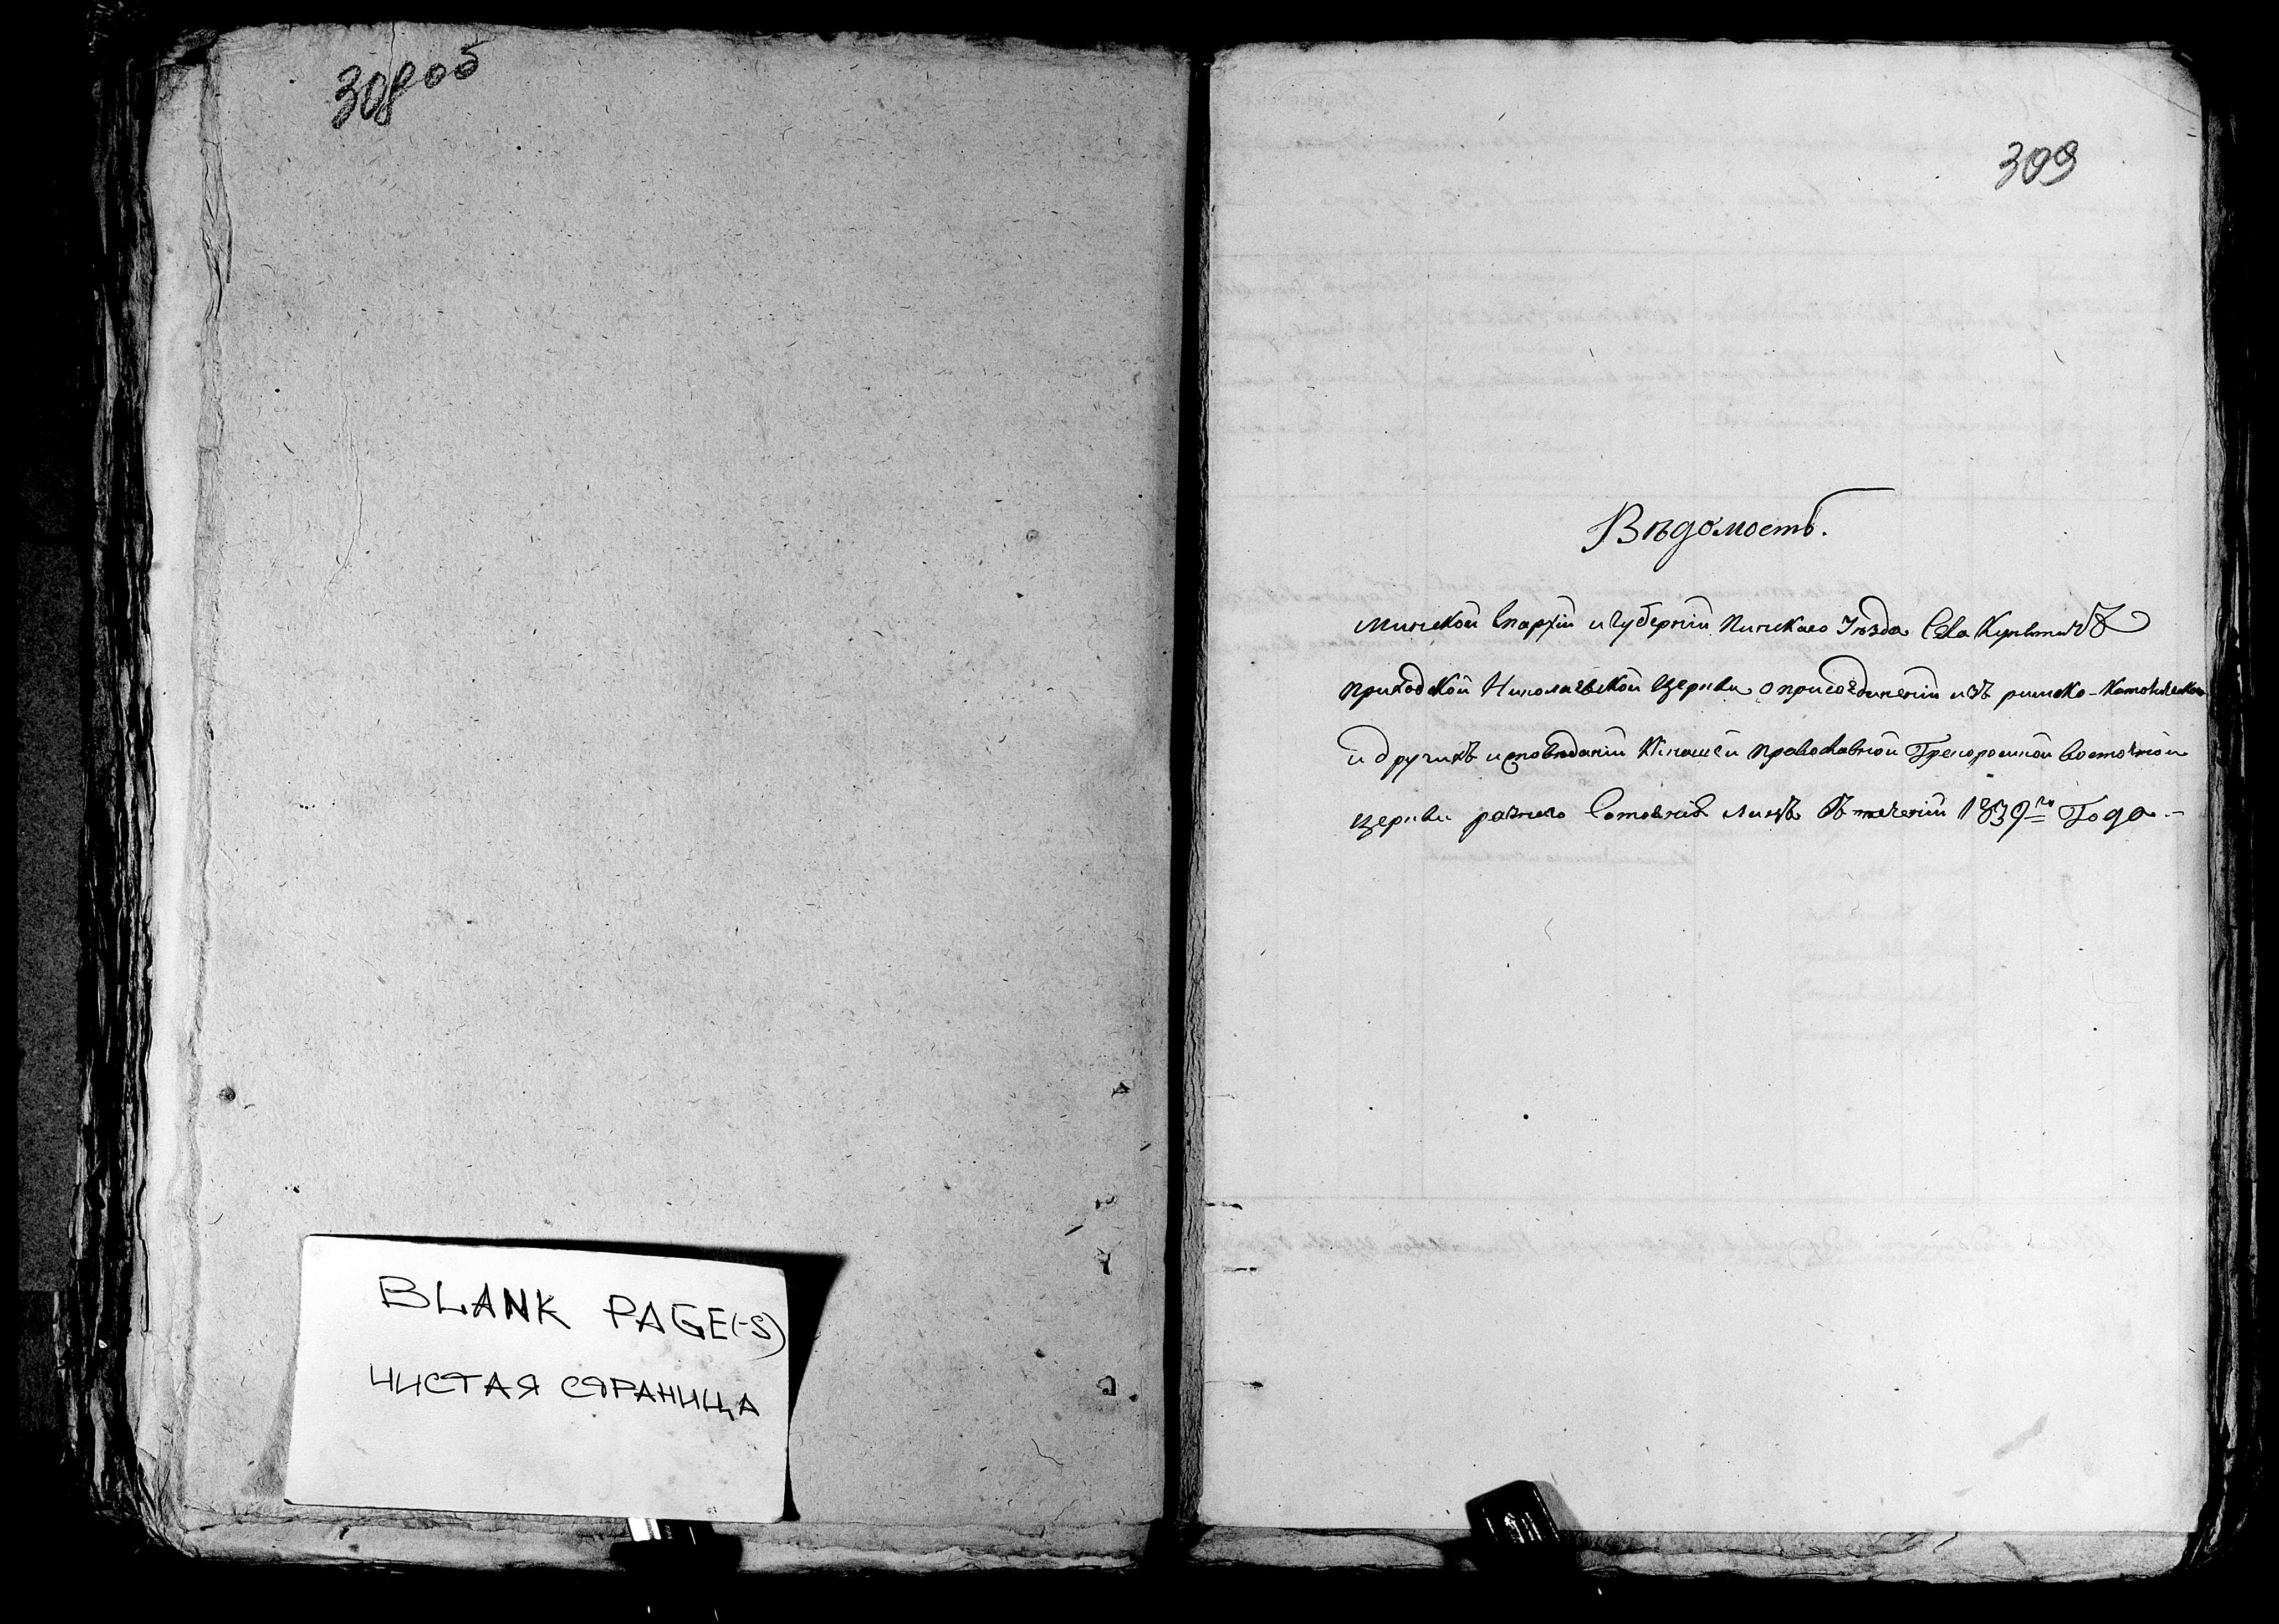 308 об
309
Вѣдомость.
Минской Епархіи и Губерніи Пинскаго Уѣзда Села Купятичъ
приходской Николаевской Церкви о присоединеніи изъ римско-католическаго
и другихъ исповѣданій къ нашей православной Грекороссійской восточной
церкви разнаго Состоянія лицъ въ теченіи 1839го Года. -
BLANK PAGE(-S)
ЧИСТАЯ СТРАНИЦА